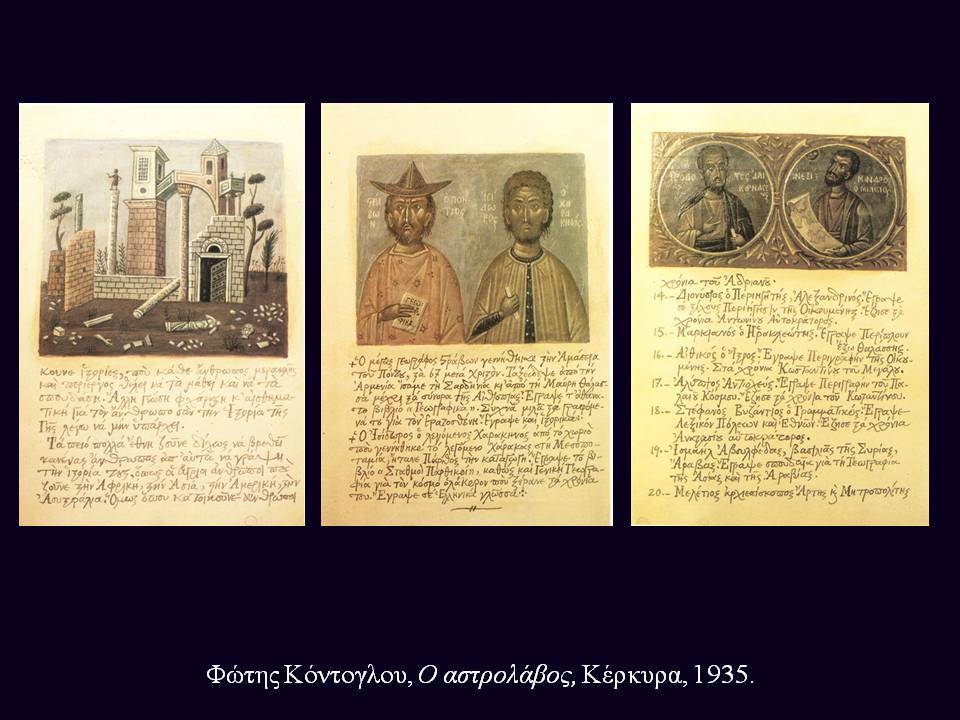 κουνε ἱστορίες, ποὺ κάθε ἄνθρωπος
καὶ περίεργος θέλει νὰ τὰ μάθει καὶ νὰ τὰ
σπουδάσει. Ἄλλη γνώση
τικὴ γιὰ τὸν ἄνθρωπο σὰν τὴν Ἱστορία τῆς
Γῆς λέγω νὰ μὴν ὑπάρχει.
Τὰ πειὸ πολλὰ ἔθνη ζοῦνε δίχως νὰ βρεθῆ
κανένας ἄνθρωπος ἀπ' αὐτὰ νὰ γράψη
τὴν ἱστορία τους, ὅπως οἱ ἄγριοι ἄνθρωποι ποὺ
ζοῦνε στὴν Ἀφρικὴ, στὴν Ἀσία, στὴν Ἀμερικὴ, στὴν
Αὐστραλία. Ὅμως ὅπου κατοικοῦνε
ΣΤΡΑ ΒΩ Ν
Ο ΠΟΝ ΤΙΟΣ
ΙΣΙ ΔΩ ΡΟΣ
Ο ΧΑ ΡΑ ΚΗΝΟΣ
ΓΕΩΓ ΡΑ ΦΙΚΑ
+ Ὁ μέγας γεωγράφος Στράβων γεννήθηκε στὴν Ἀμάσεια
τοῦ Πόντου, στὰ 67 μετὰ Χριστόν. Ταξείδεψε ἀπὸ τὴν
Ἀρμενία ἴσαμε τὴ Σαρδηνία κι' ἀπὸ τὴ Μαύρη Θάλασ-
σα μέχρι τὰ σύνορα τῆς Αἰθιοπίας. Ἔγραψε τ' ἀθάνα-
το βιβλίο «Γεωγραφικά». Συχνὰ μιλᾶ
νὰ τὸ γιὰ τὸν Ἐρατοσθένη. Ἔγραψε καὶ Ἱστορικά.
+ Ὁ Ἰσίδωρος ὁ λεγόμενος Χαρακηνὸς ἀπὸ τὸ χωριὸ
ποὺ γεννήθηκε τὸ λεγόμενο Χάρακας στὴ Μεσοπο-
ταμία, ἤτανε Πάρθος τὴν καταγωγή. Ἔγραψε τὸ βι-
βλίο «Σταθμοὶ Παρθικοὶ», καθὼς καὶ Γενικὴ Γεωγρα-
φία γιὰ τὸν κόσμο ὁλάκερον ποὺ ξέρανε στὰ χρόνια
του. Ἔγραψε σὲ Ἑλληνικὴ γλῶσσα.
ΗΡΟΔΟ ΤΟΣ ΑΛΙ ΚΑΡΝΑΣ
ΑΝΑΞΙ ΜΑΝΔΡΟΣ Ο ΜΙΛΗΣΙΟΣ
χρόνια τοῦ Ἀδριανοῦ.
14.- Διονύσιος ὁ Περιηγητὴς, Ἀλεξανδρινός. Ἔγραψε
σὲ στίχους Περιήγησιν τῆς Οἰκουμένης. Ἔζησε στὰ
χρόνια Ἀντωνίνου Αὐτοκράτορος.
15.- Μαρκιανὸς ὁ Ἡρακλεώτης. Ἔγραψε Περίπλουν
ἔξω θαλάσσης.
16.- Αἰθικὸς ὁ Ἴστρος. Ἔγραψε Περιγραφὴν τῆς Οἰκου-
μένης. Στὰ χρόνια Κωσταντίνου τοῦ Μεγάλου.
17.- Ἀλύπιος Ἀντιοχεύς. Ἔγραψε Περιγραφὴν τοῦ Πα-
λαιοῦ Κόσμου. Ἔζησε στὰ χρόνια τοῦ Κωσταντίνου.
18.- Στέφανος Βυζάντιος ὁ Γραμματικός. Ἔγραψε
Λεξικὸν Πόλεων καὶ Ἐθνῶν. Ἔζησε στὰ χρόνια
Ἀναστασίου αὐτοκράτορος.
19.- Ἰσμαὴλ Ἀβουλφέδας, βασιλιᾶς τῆς Συρίας,
Ἄραβας. Ἔγραψε σπουδαῖα γιὰ τὴ Γεωγραφία
τῆς Ἀσίας καὶ τῆς Ἀραβίας.
20.- Μελέτιος ἀρχιεπίσκοπος Ἄρτης ἢ Μητροπολίτης
Φώτης Κόντογλου, Ο αστρολάβος, Κέρκυρα, 1935.